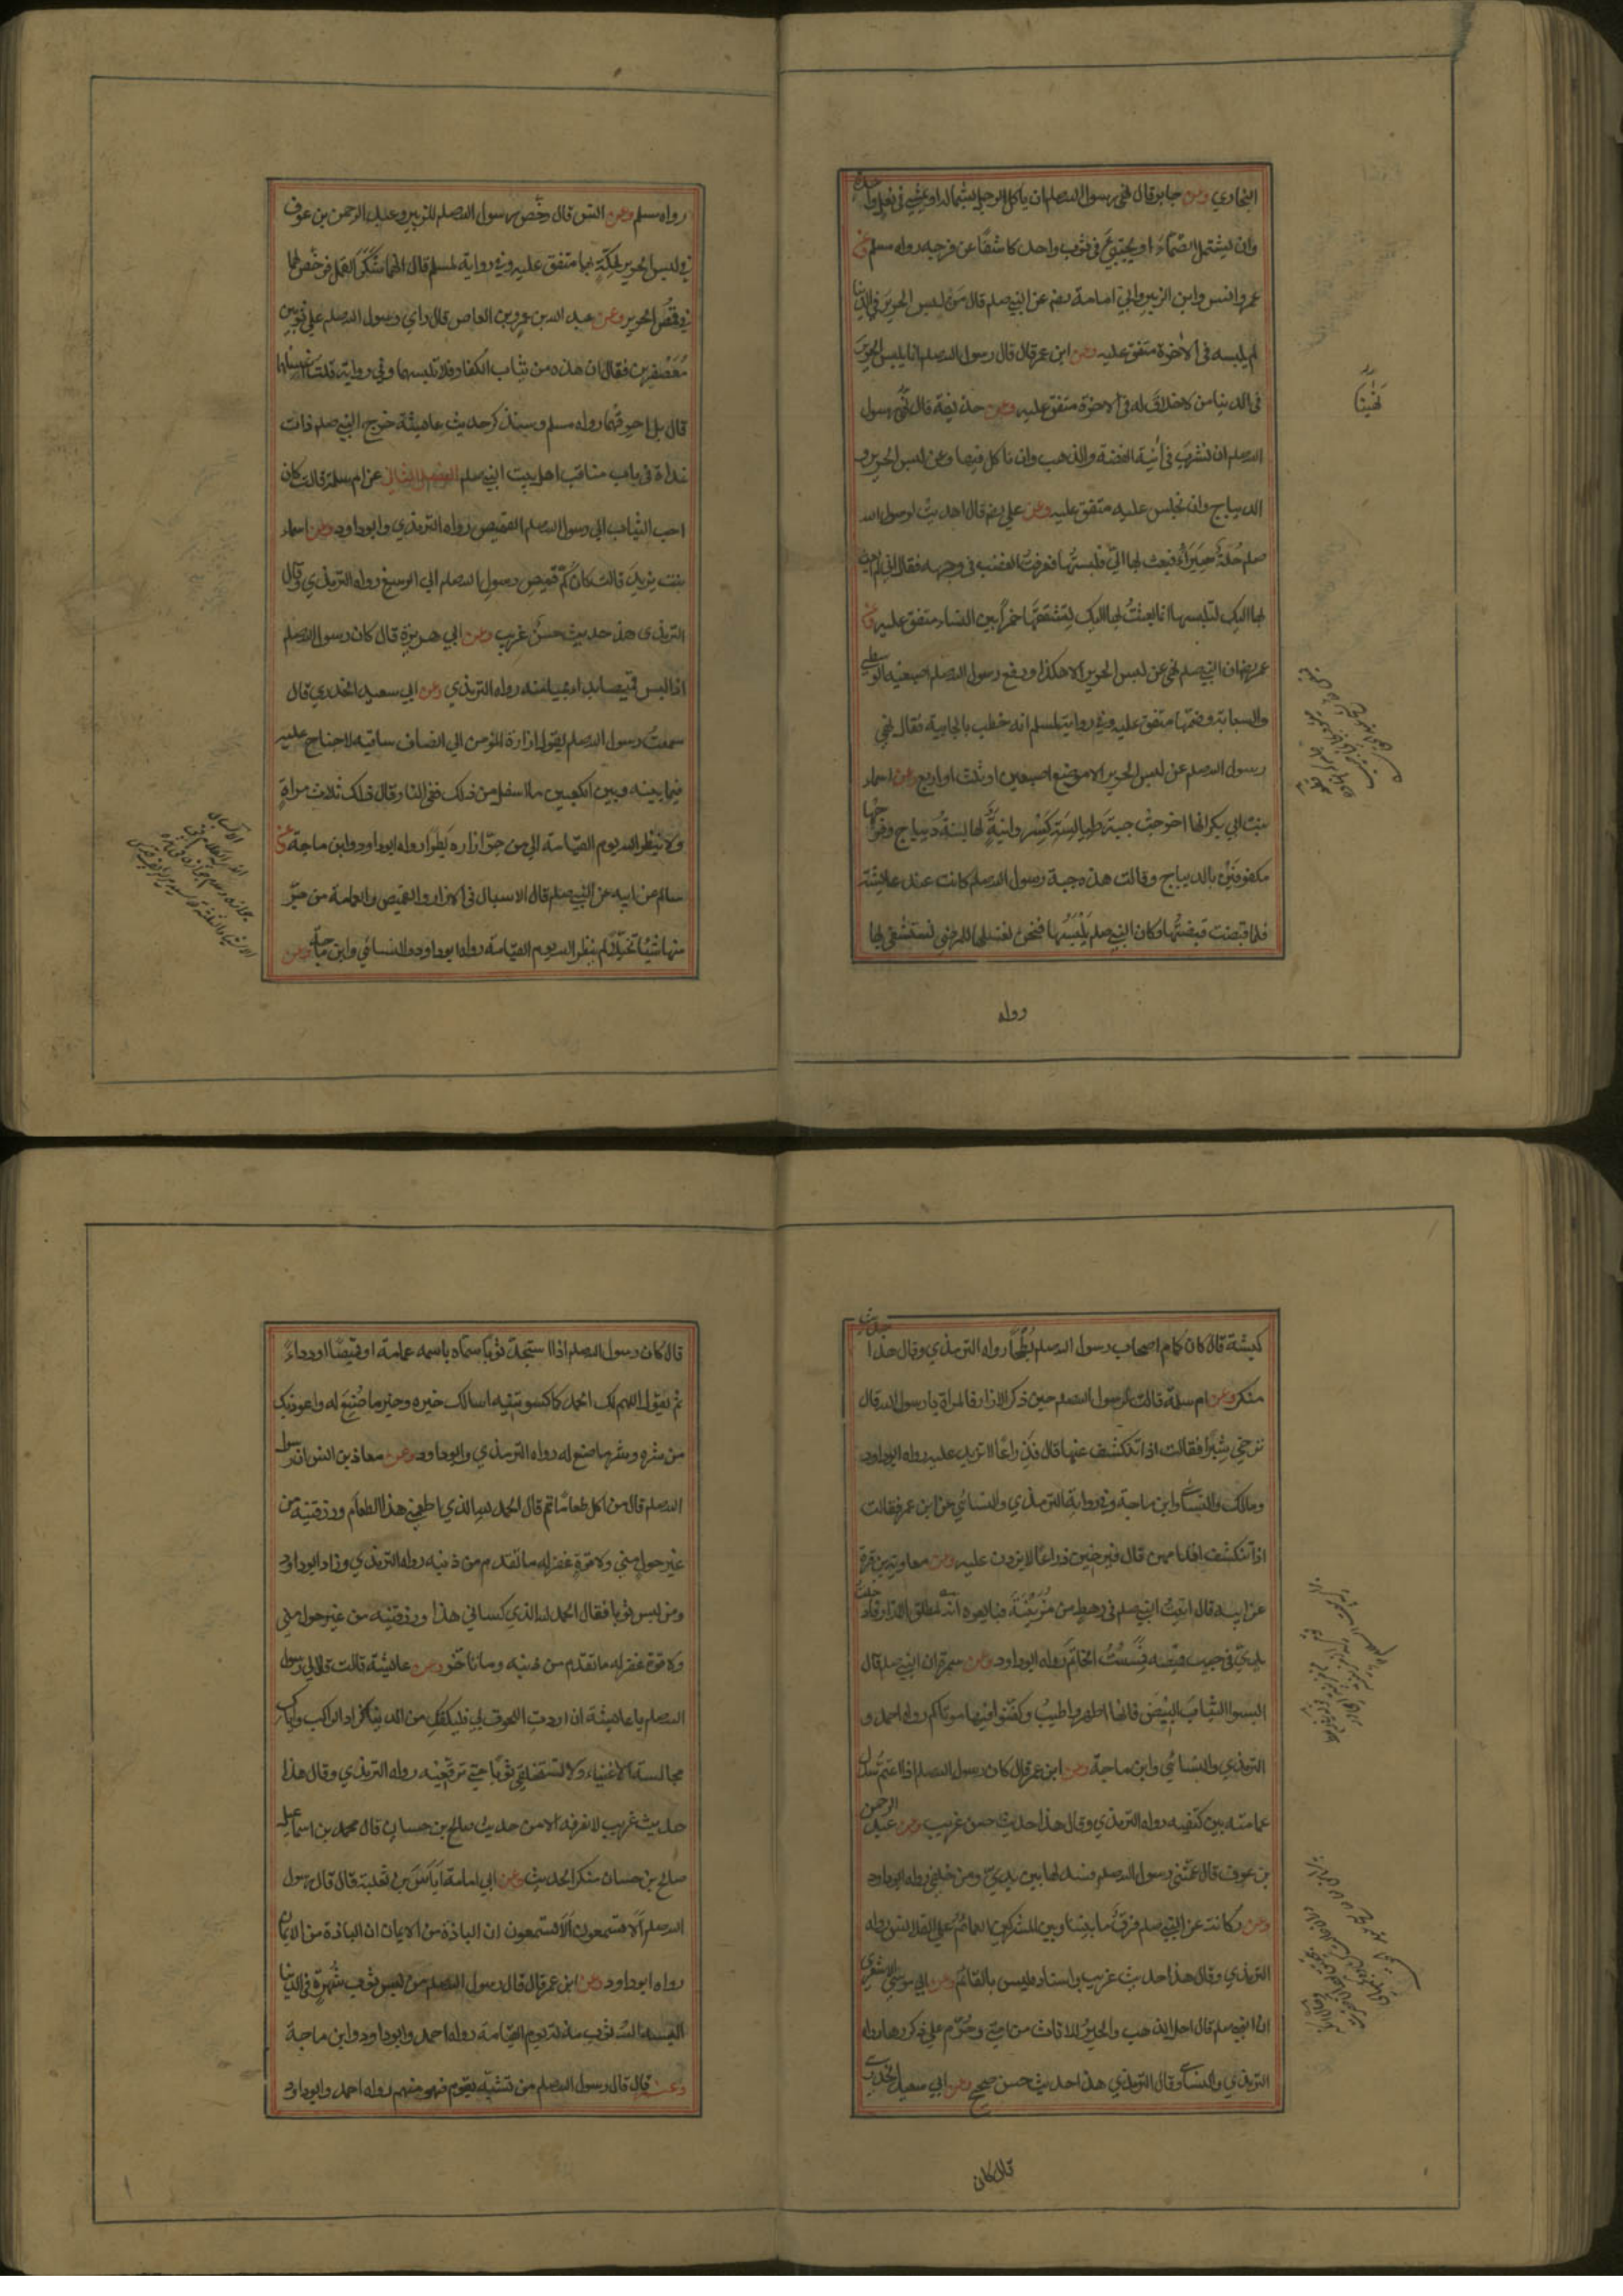 البخاري وعن جابر قال نهى رسول الله صلعم ان ياكل الرجل بشماله او يمشي في نعل واحدة
وان يشتمل الصماء او يحتبي في ثوب واحد كاشفا عن فرجه رواه مسلم وعن
عمر وانس وابن الزبير وابي امامة رضه عن النبي صلعم قال من لبس الحرير في الدنيا
لم يلبسه في الاخرة متفق عليه وعن ابن عمر قال قال رسول الله صلعم انما يلبس الحرير
في الدنيا من لا خلاق له في الاخرة متفق عليه وعن حذيفة قال نهى رسول
الله صلعم ان نشرب في آنية الفضة والذهب وان ناكل فيها وعن لبس الحرير و
الديباج وان نجلس عليه متفق عليه وعن علي رضه قال اهديت لرسول الله
صلعم حلة سيراء فبعث بها الي فلبستها فعرفت الغضب في وجهه فقال اني لم ابعث
بها اليك لتلبسها انما بعثت بها اليك لتشققها خمرا بين النساء متفق عليه وعن
عمر رضه ان النبي صلعم نهى عن لبس الحرير الا هكذا ورفع رسول الله صلعم اصبعيه الوسطى
والسبابة وضمهما متفق عليه وفي رواية لمسلم انه خطب بالجابية فقال نهى
رسول الله صلعم عن لبس الحرير الا موضع اصبعين او ثلث او اربع وعن اسماء
بنت ابي بكر انها اخرجت جبة طيالسة كسروانية لها لبنة ديباج وفرجيها
مكفوفين بالديباج وقالت هذه جبة رسول الله صلعم كانت عند عايشة
فلما قبضت قبضتها وكان النبي صلعم يلبسها فنحن نغسلها للمرضى نستشفي بها
رواه
رواه مسلم وعن انس قال رخص رسول الله صلعم للزبير وعبد الرحمن بن عوف
في لبس الحرير لحكة بهما متفق عليه وفي رواية لمسلم قال انهما شكوا القمل فرخص لهما
في قمص الحرير وعن عبد الله بن عمرو بن العاص قال راي رسول الله صلعم علي ثوبين
معصفرين فقال ان هذه من ثياب الكفار فلا تلبسهما وفي رواية قلت اغسلهما
قال بل احرقهما رواه مسلم وسنذكر حديث عايشة خرج النبي صلعم ذات
غداة في باب مناقب اهل بيت النبي صلعم الفصل الثاني عن ام سلمة قالت كان
احب الثياب الى رسول الله صلعم القميص رواه الترمذي وابو داود وعن اسماء
بنت يزيد قالت كان كم قميص رسول الله صلعم الى الرسغ رواه الترمذي وقال
الترمذي هذا حديث حسن غريب وعن ابي هريرة قال كان رسول الله صلعم
اذا لبس قميصا بدا بميامنه رواه الترمذي وعن ابي سعيد الخدري قال
سمعت رسول الله صلعم يقول ازارة المؤمن الى انصاف ساقيه لا جناح عليه
فيما بينه وبين الكعبين ما اسفل من ذلك ففي النار وقال ذلك ثلاث مرات
ولا ينظر الله يوم القيامة الى من جر ازاره بطرا رواه ابو داود وابن ماجة وعن
سالم عن ابيه عن النبي صلعم قال الاسبال في الازار والقميص والعمامة من جر
منها شيئا تخيلا لم ينظر الله يوم القيامة رواه ابو داود والنسائي وابن ماجة وعن
كبشة قال كان كمام اصحاب رسول الله صلعم بطحا رواه الترمذي وقال هذا حديث
منكر وعن ام سلمة قالت لرسول الله صلعم حين ذكر الازار فالمراة يا رسول الله قال
ترخي شبرا فقالت اذا تنكشف عنها قال فذراعا لا تزيد عليه رواه ابو داود
ومالك والنسائي وابن ماجة وفي رواية الترمذي والنسائي عن ابن عمر فقالت
اذا تنكشف اقدامهن قال فيرخين ذراعا لا يزدن عليه وعن معاوية بن قرة
عن ابيه قال اتيت النبي صلعم في رهط من مزينة فبايعوه انه لمطلق الازار فادخلت
يدي في جيب قميصه فمسست الخاتم رواه ابو داود وعن سمرة ان النبي صلعم قال
البسوا الثياب البيض فانها اطهر واطيب وكفنوا فيها موتاكم رواه احمد و
الترمذي والنسائي وابن ماجة وعن ابن عمر قال كان رسول الله صلعم اذا اعتم سدل
عمامته بين كتفيه رواه الترمذي وقال هذا حديث حسن غريب وعن عبد الرحمن
بن عوف قال عممني رسول الله صلعم فسدلها بين يدي ومن خلفي رواه ابو داود
وعن ركانة عن النبي صلعم فرق ما بيننا وبين المشركين العمائم على القلانس رواه
الترمذي وقال هذا حديث غريب واسناده ليس بالقائم وعن ابي موسى الاشعري
ان النبي صلعم قال احل الذهب والحرير للاناث من امتي وحرم على ذكورها رواه
الترمذي والنسائي وقال الترمذي هذا حديث حسن صحيح وعن ابي سعيد الخدري
قال كان
قال كان رسول الله صلعم اذا استجد ثوبا سماه باسمه عمامة او قميصا او رداء
ثم يقول اللهم لك الحمد كما كسوتنيه اسالك خيره وخير ما صنع له واعوذ بك
من شره وشر ما صنع له رواه الترمذي وابو داود وعن معاذ بن انس ان رسول
الله صلعم قال من اكل طعاما ثم قال الحمد لله الذي اطعمني هذا الطعام ورزقنيه من
غير حول مني ولا قوة غفر له ما تقدم من ذنبه رواه الترمذي وزاد ابو داود
ومن لبس ثوبا فقال الحمد لله الذي كساني هذا ورزقنيه من غير حول مني
ولا قوة غفر له ما تقدم من ذنبه وما تاخر وعن عائشة قالت قال لي رسول
الله صلعم يا عايشة ان اردت اللحوق بي فليكفك من الدنيا كزاد الراكب واياك
مجالسة الاغنياء ولا تستخلقي ثوبا حتى ترقعيه رواه الترمذي وقال هذا
حديث غريب لا نعرفه الا من حديث صالح بن حسان قال محمد بن اسماعيل
صالح بن حسان منكر الحديث وعن ابي امامة اياس بن ثعلبة قال قال رسول
الله صلعم الا تسمعون الا تسمعون ان البذاذة من الايمان ان البذاذة من الايمان
رواه ابو داود وعن ابن عمر قال قال رسول الله صلعم من لبس ثوب شهرة في الدنيا
البسه الله ثوب مذلة يوم القيامة رواه احمد وابو داود وابن ماجة
وعنه قال قال رسول الله صلعم من تشبه بقوم فهو منهم رواه احمد وابو داود